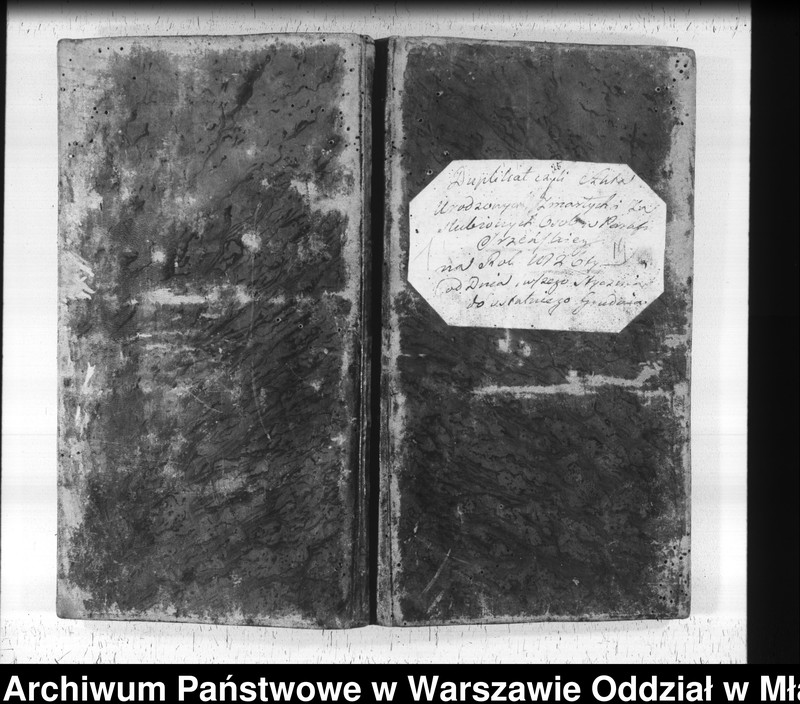 Duplikat czyli Akta
Urodzonych, Zmarłych i Za
slubionych Osob w Parafi
na Rok 1826ty 19
od Dnia 1szego Stycznia
do ostatniego Grudnia
Archiwum Państwowe w Warszawie Oddział w Mła